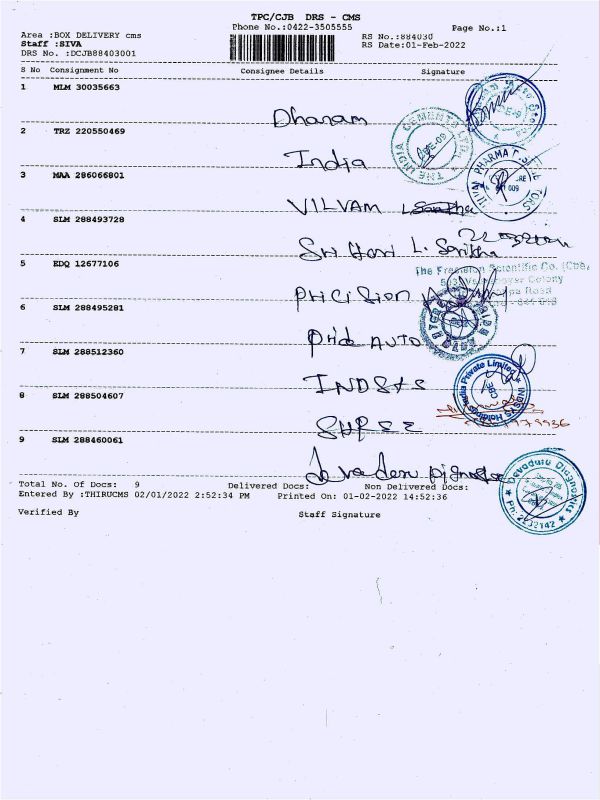 TPC/CJB DRS - CMS
Phone No.:0422-3505555
Page No.:1
Area :BOX DELIVERY cms
RS No.:884030
Staff :SIVA
RS Date:01-Feb-2022
DRS No. :DCJB88403001
S No Consignment No Consignee Details Signature
1 MLM 30035663
Dhanam
2 TRZ 220550469
THE INDIA CEMENTS LTD
India
3 MAA 286066801
VILVAM PHARMA
VILVAM
4 SLM 288493728
Sri Hari L. Sarikha
5 EDQ 12677106
The Precision Scientific Co. (CBE)
Colony
Road
Pricision
6 SLM 288495281
Prid AUTO
7 SLM 288512360
INDSAS
Holdings India Private Limited
CBE
8 SLM 288504607
SHREE
9 SLM 288460061
Devaduru Diagnostics
Total No. Of Docs: 9 Delivered Docs: Non Delivered Docs:
Entered By :THIRUCMS 02/01/2022 2:52:34 PM Printed On: 01-02-2022 14:52:36
Verified By Staff Signature